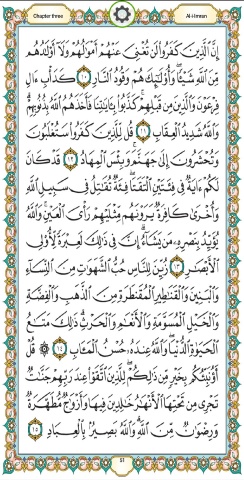 Chapter three
Al-Imran
إِنَّ ٱلَّذِينَ كَفَرُوا۟ لَن تُغْنِىَ عَنْهُمْ أَمْوَٰلُهُمْ وَلَآ أَوْلَٰدُهُم
مِّنَ ٱللَّهِ شَيْـًٔا ۖ وَأُو۟لَٰٓئِكَ هُمْ وَقُودُ ٱلنَّارِ ١٠ كَدَأْبِ ءَالِ
فِرْعَوْنَ وَٱلَّذِينَ مِن قَبْلِهِمْ ۚ كَذَّبُوا۟ بِـَٔايَٰتِنَا فَأَخَذَهُمُ ٱللَّهُ بِذُنُوبِهِمْ ۗ
وَٱللَّهُ شَدِيدُ ٱلْعِقَابِ ١١ قُل لِّلَّذِينَ كَفَرُوا۟ سَتُغْلَبُونَ
وَتُحْشَرُونَ إِلَىٰ جَهَنَّمَ ۚ وَبِئْسَ ٱلْمِهَادُ ١٢ قَدْ كَانَ
لَكُمْ ءَايَةٌ فِى فِئَتَيْنِ ٱلْتَقَتَا ۖ فِئَةٌ تُقَٰتِلُ فِى سَبِيلِ ٱللَّهِ
وَأُخْرَىٰ كَافِرَةٌ يَرَوْنَهُم مِّثْلَيْهِمْ رَأْىَ ٱلْعَيْنِ ۚ وَٱللَّهُ
يُؤَيِّدُ بِنَصْرِهِۦ مَن يَشَآءُ ۗ إِنَّ فِى ذَٰلِكَ لَعِبْرَةً لِّأُو۟لِى
ٱلْأَبْصَٰرِ ١٣ زُيِّنَ لِلنَّاسِ حُبُّ ٱلشَّهَوَٰتِ مِنَ ٱلنِّسَآءِ
وَٱلْبَنِينَ وَٱلْقَنَٰطِيرِ ٱلْمُقَنطَرَةِ مِنَ ٱلذَّهَبِ وَٱلْفِضَّةِ
وَٱلْخَيْلِ ٱلْمُسَوَّمَةِ وَٱلْأَنْعَٰمِ وَٱلْحَرْثِ ۗ ذَٰلِكَ مَتَٰعُ
ٱلْحَيَوٰةِ ٱلدُّنْيَا ۖ وَٱللَّهُ عِندَهُۥ حُسْنُ ٱلْمَـَٔابِ ١٤ ۞ قُلْ
أَؤُنَبِّئُكُم بِخَيْرٍ مِّن ذَٰلِكُمْ ۚ لِلَّذِينَ ٱتَّقَوْا۟ عِندَ رَبِّهِمْ جَنَّٰتٌ
تَجْرِى مِن تَحْتِهَا ٱلْأَنْهَٰرُ خَٰلِدِينَ فِيهَا وَأَزْوَٰجٌ مُّطَهَّرَةٌ
وَرِضْوَٰنٌ مِّنَ ٱللَّهِ ۗ وَٱللَّهُ بَصِيرٌۢ بِٱلْعِبَادِ ١٥
51